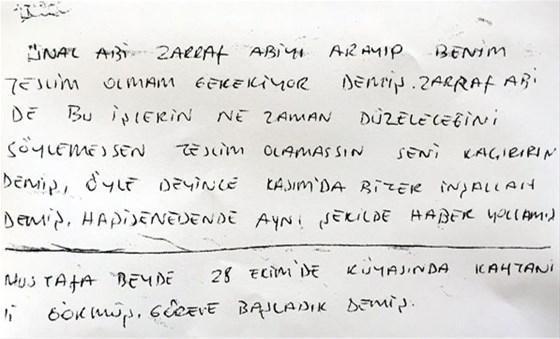 ÜNAL ABİ ZARRAF ABİYİ ARAYIP BENİM
TESLİM OLMAM GEREKİYOR DEMİŞ. ZARRAF ABİ
DE BU İŞLERİN NE ZAMAN DÜZELECEĞİNİ
SÖYLEMESSEN TESLİM OLAMASSIN SENİ KAÇIRIRIN
DEMİŞ, ÖYLE DEYİNCE KASIM'DA BİTER İNŞALLAH
DEMİŞ. AYNI ŞEKİLDE HABER YOLLAMIŞ
MUSTAFA BEYDE 28 EKİM'DE RÜYASINDA KAHTANİ
Yİ GÖRMÜŞ. GÖREVE BAŞLADIK DEMİŞ.